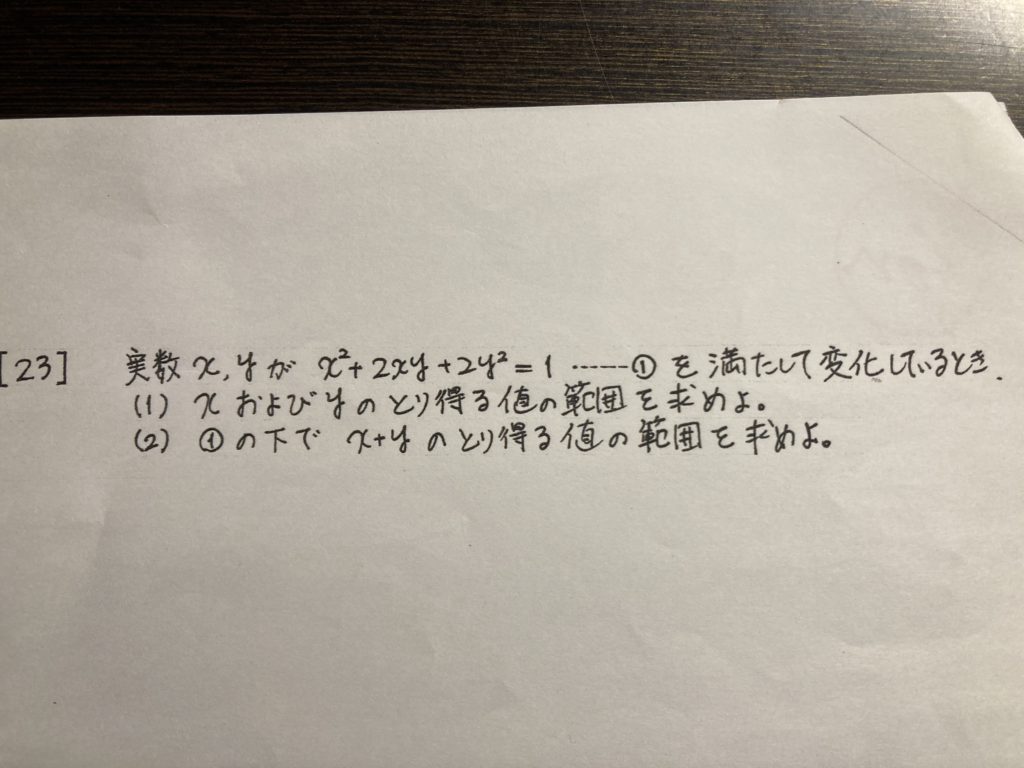 [23] 実数 x, y が x²+2xy+2y²=1 ……① を満たして変化しているとき.
(1) x および y のとり得る値の範囲を求めよ。
(2) ①の下で x+y のとり得る値の範囲を求めよ。